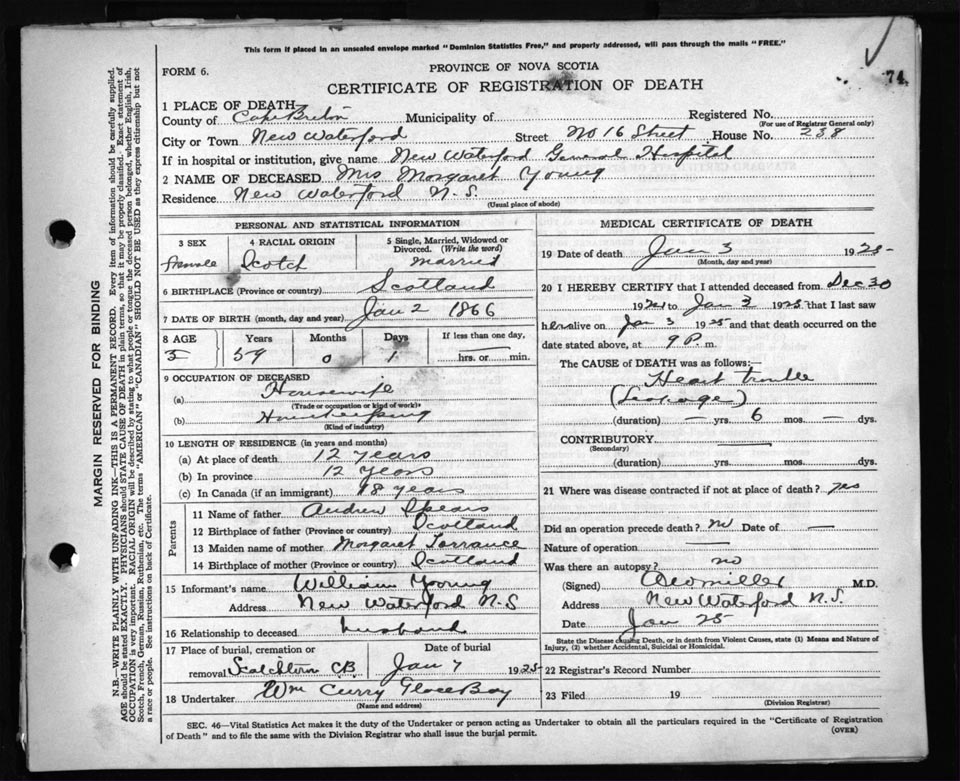 This form if placed in an unsealed envelope marked "Dominion Statistics Free," and properly addressed, will pass through the mails "FREE."
74
FORM 6.
PROVINCE OF NOVA SCOTIA
CERTIFICATE OF REGISTRATION OF DEATH
1 PLACE OF DEATH
County of Cape Breton Municipality of Registered No.
(For use of Registrar General only)
City or Town New Waterford Street No 16 Street House No. 238
If in hospital or institution, give name New Waterford General Hospital
2 NAME OF DECEASED Mrs Margaret Young
Residence New Waterford N.S.
(Usual place of abode)
PERSONAL AND STATISTICAL INFORMATION
3 SEX 4 RACIAL ORIGIN 5 Single, Married, Widowed or Divorced. (Write the word)
Female Scotch married
6 BIRTHPLACE (Province or country) Scotland
7 DATE OF BIRTH (month, day and year) Jan 2 1866
8 AGE Years Months Days If less than one day,
59 0 1 hrs. or min.
9 OCCUPATION OF DECEASED
(a) Housewife
(Trade or occupation or kind of work)
(b) Housekeeping
(Kind of industry)
10 LENGTH OF RESIDENCE (in years and months)
(a) At place of death 12 years
(b) In province 12 Years
(c) In Canada (if an immigrant) 18 years
Parents
11 Name of father Andrew Spears
12 Birthplace of father (Province or country) Scotland
13 Maiden name of mother Margaret Torrance
14 Birthplace of mother (Province or country) Scotland
15 Informant's name William Young
Address New Waterford N.S
16 Relationship to deceased husband
17 Place of burial, cremation or removal Date of burial
C.B Jan 7 1925
18 Undertaker Wm Curry Glace Bay
(Name and address)
MEDICAL CERTIFICATE OF DEATH
19 Date of death Jan 3 1925
(Month, day and year)
20 I HEREBY CERTIFY that I attended deceased from Dec 30
1924 to Jan 3 1925 that I last saw
her alive on Jan 3 1925 and that death occurred on
date stated above, at 9 P. m.
The CAUSE of DEATH was as follows:
Heart trouble
(Leakage)
(duration) yrs. 6 mos. dys.
CONTRIBUTORY
(Secondary)
(duration) yrs. mos. dys.
21 Where was disease contracted if not at place of death? yes
Did an operation precede death? no Date of —
Nature of operation —
Was there an autopsy? no
(Signed) M.D.
Address New Waterford N.S.
Date Jan 25
State the Disease causing Death, or in death from Violent Causes, state (1) Means and Nature of
Injury, (2) whether Accidental, Suicidal or Homicidal.
22 Registrar's Record Number
23 Filed 19
(Division Registrar)
SEC. 46—Vital Statistics Act makes it the duty of the Undertaker or person acting as Undertaker to obtain all the particulars required in the "Certificate of Registration
of Death" and to file the same with the Division Registrar who shall issue the burial permit.
(OVER)
MARGIN RESERVED FOR BINDING
N.B.—WRITE PLAINLY WITH UNFADING INK—THIS IS A PERMANENT RECORD. Every item of information should be carefully supplied.
AGE should be stated EXACTLY. PHYSICIANS should STATE CAUSE OF DEATH in plain terms, so that it may be properly classified. Exact statement of
OCCUPATION is very important. RACIAL ORIGIN will be described by stating to what people or tongue the deceased person belonged, whether English, Irish,
Scotch, French, German, Russian, Ruthenian, etc. The terms "AMERICAN" or "CANADIAN" SHOULD NOT BE USED as they express citizenship but not
a race or people. See instructions on back of Certificate.